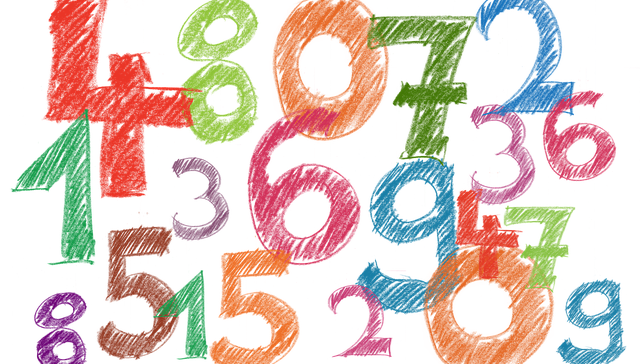 4 8 0 7 2
1 3 6 9 3 6
4 7
5 1 5 2 0 9
8